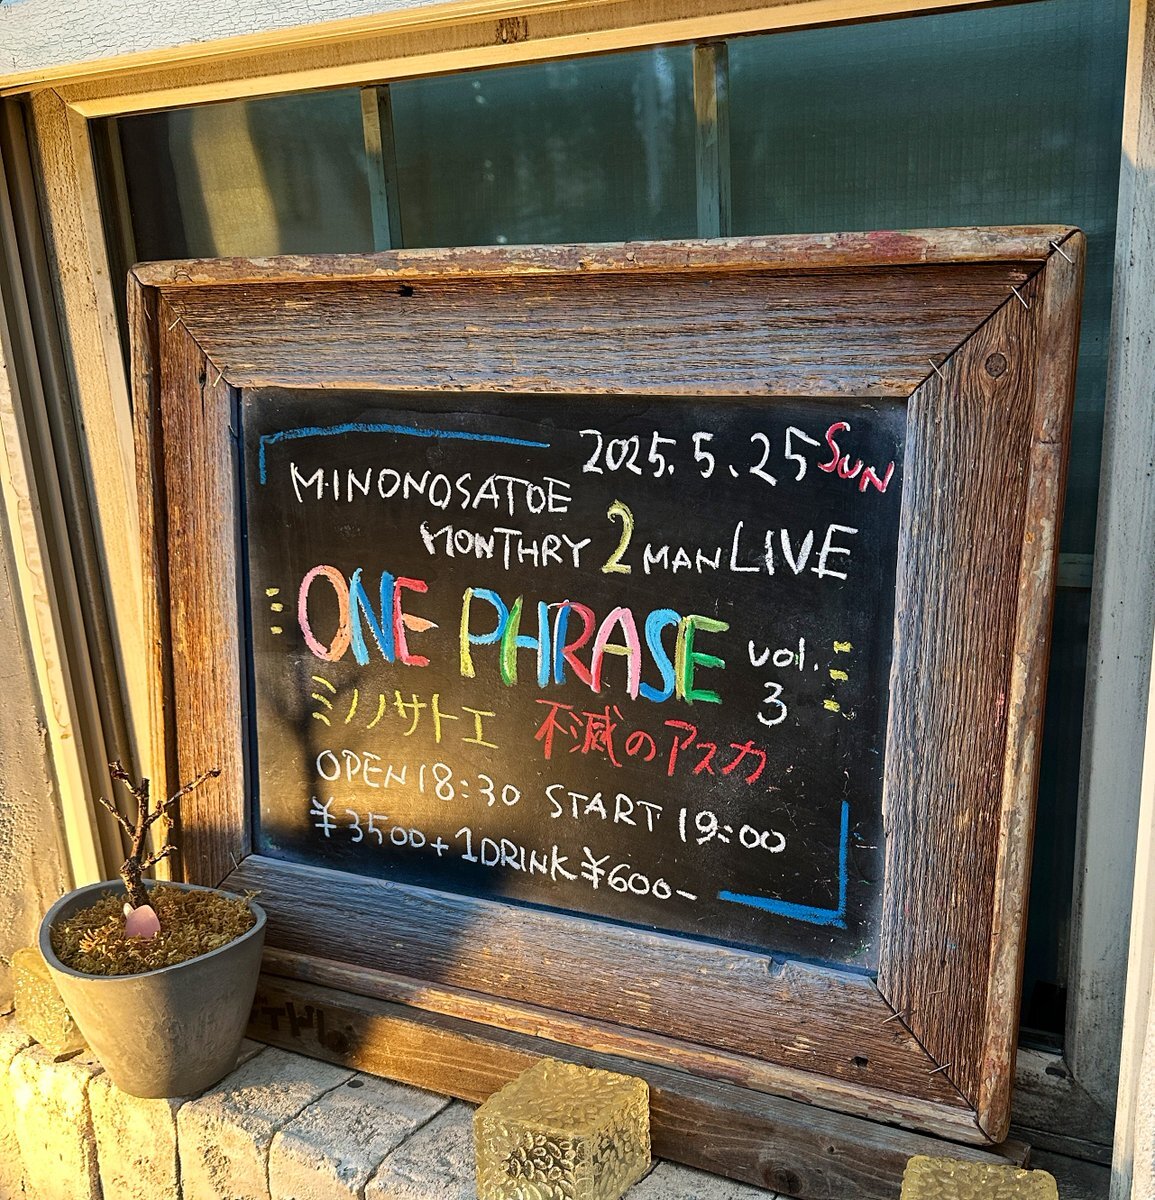 2025.5.25 SUN
MINONOSATOE
MONTHRY 2MAN LIVE
ONE PHRASE vol.3
ミノノサトエ 不滅のアスカ
OPEN 18:30 START 19:00
¥3500+1DRINK¥600-